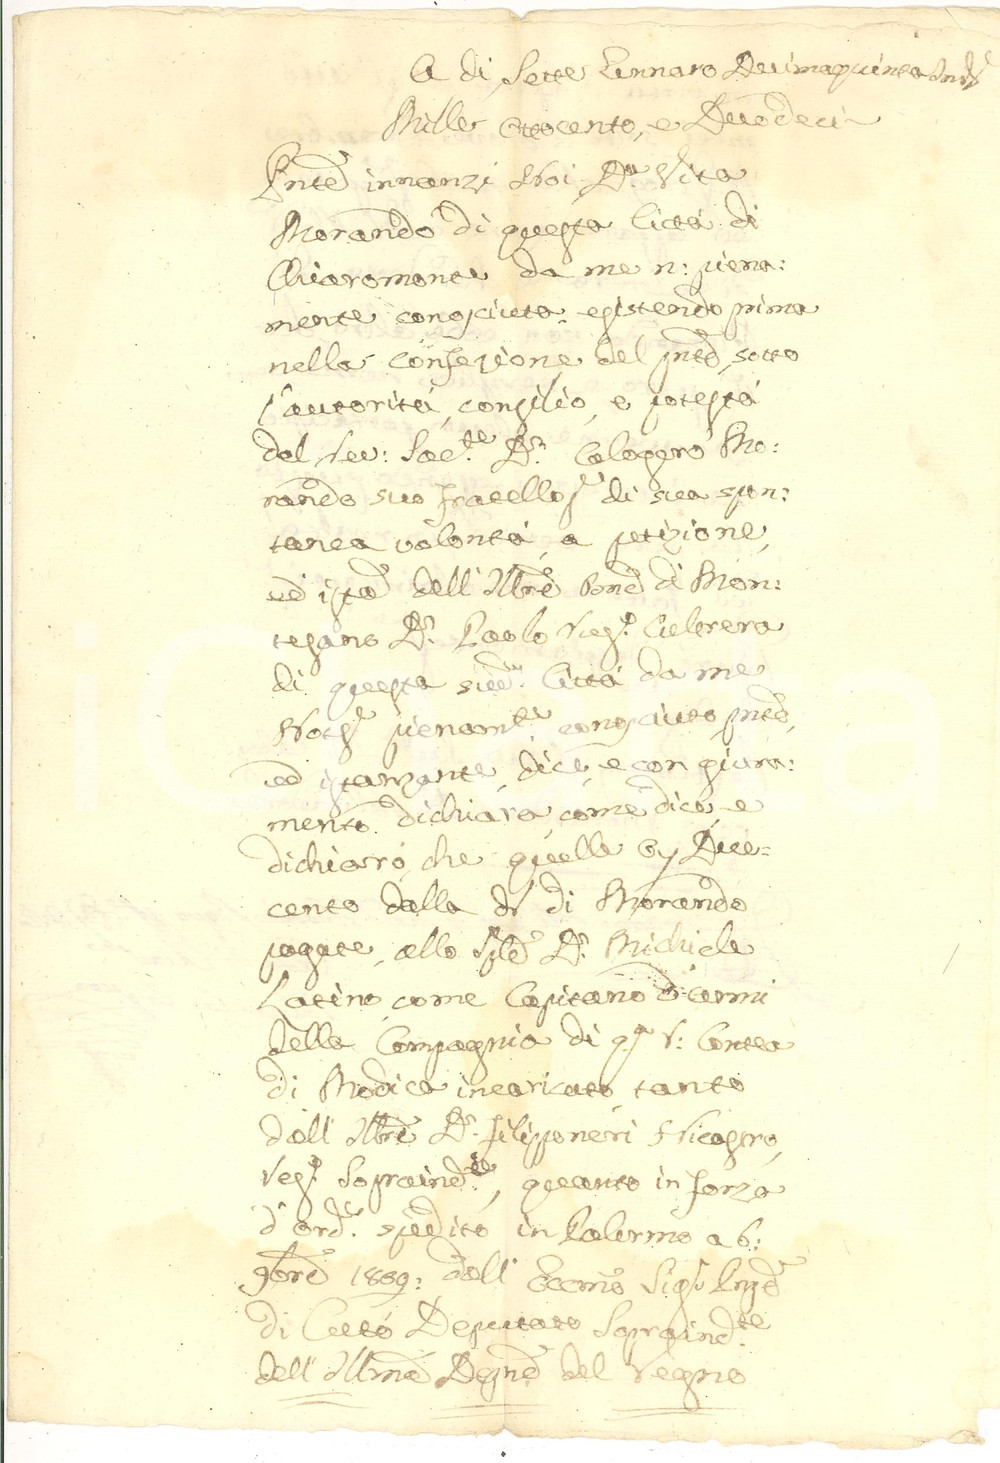 A di Sette Gennaro Decimaquinta Ind.
Mille Ottocento, e Duodeci
Pnte innanzi Noi Da. Vita
Morando di questa Città di
Chiaromonte da me n: piena:
mente conosciuta, esistendo prima
nella confezione del pnte, sotto
l'autorità, consilio, e potestà
del Rev: Sac.te D. Calogero Mo:
rando suo Fratello, di sua spon:
tanea volontà, a petizione,
ed ista dell' Illre Bne di Mon:
tegano D. Paolo Cabrera
di questa suda. Città da me
Notr pienamte conosciuto pnte,
ed istanzante, dice, e con giura:
mento dichiara, come dice, e
dichiarò, che quelle Oz Due=
cento dalla di Morando
pagate, allo D. Michiele
Latino, come Capitano d'armi
della Compagnia di qsta Contea
di Modica incaricato, tanto
dall' Illre D. Filipponeri
Regio Sopraindte, quanto in forza
d'ord. spedito in Palermo a 6:
9bre 1809: dall' Eccmo Sigr Pnpe
di Cutò Deputato Sopraindte
dell' Illma Depne del Regno